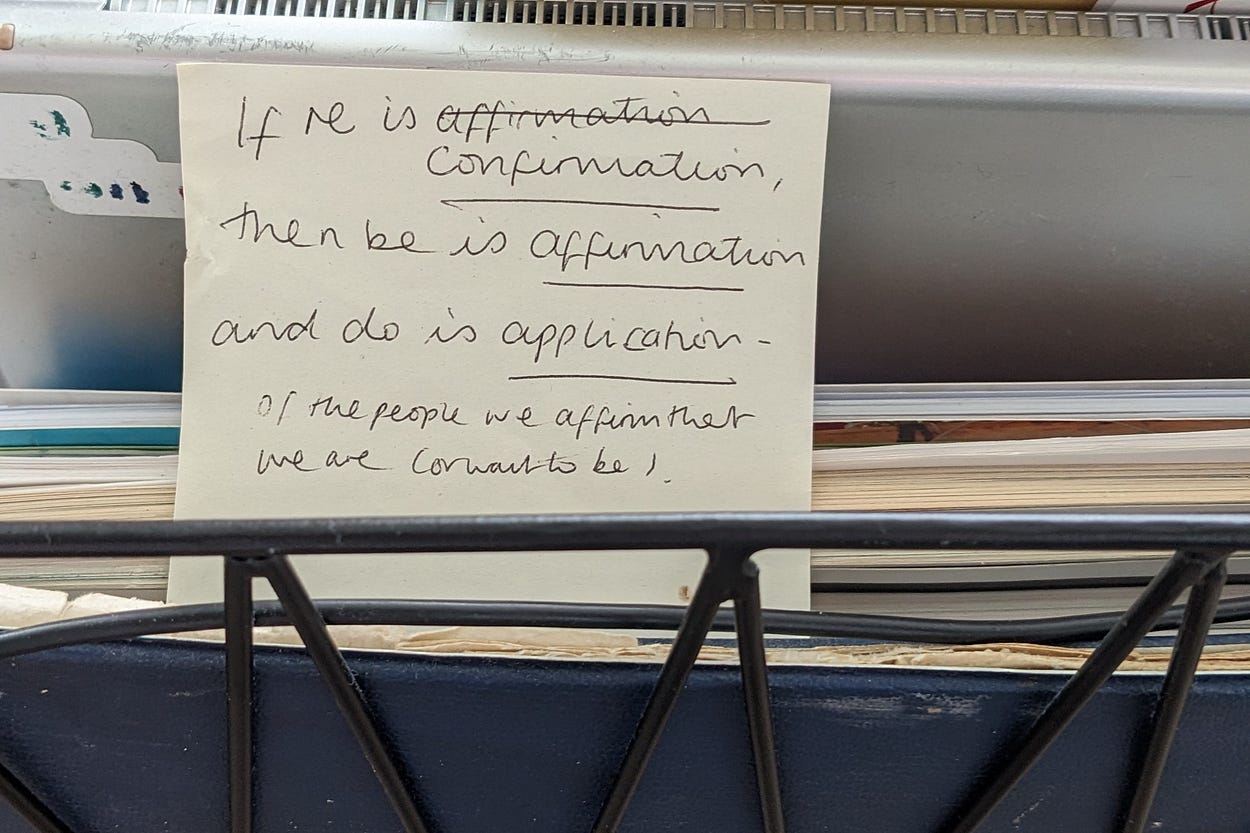 If re is affirmation
confirmation,
then be is affirmation
and do is application -
of the people we affirm that
we are (or want to be).